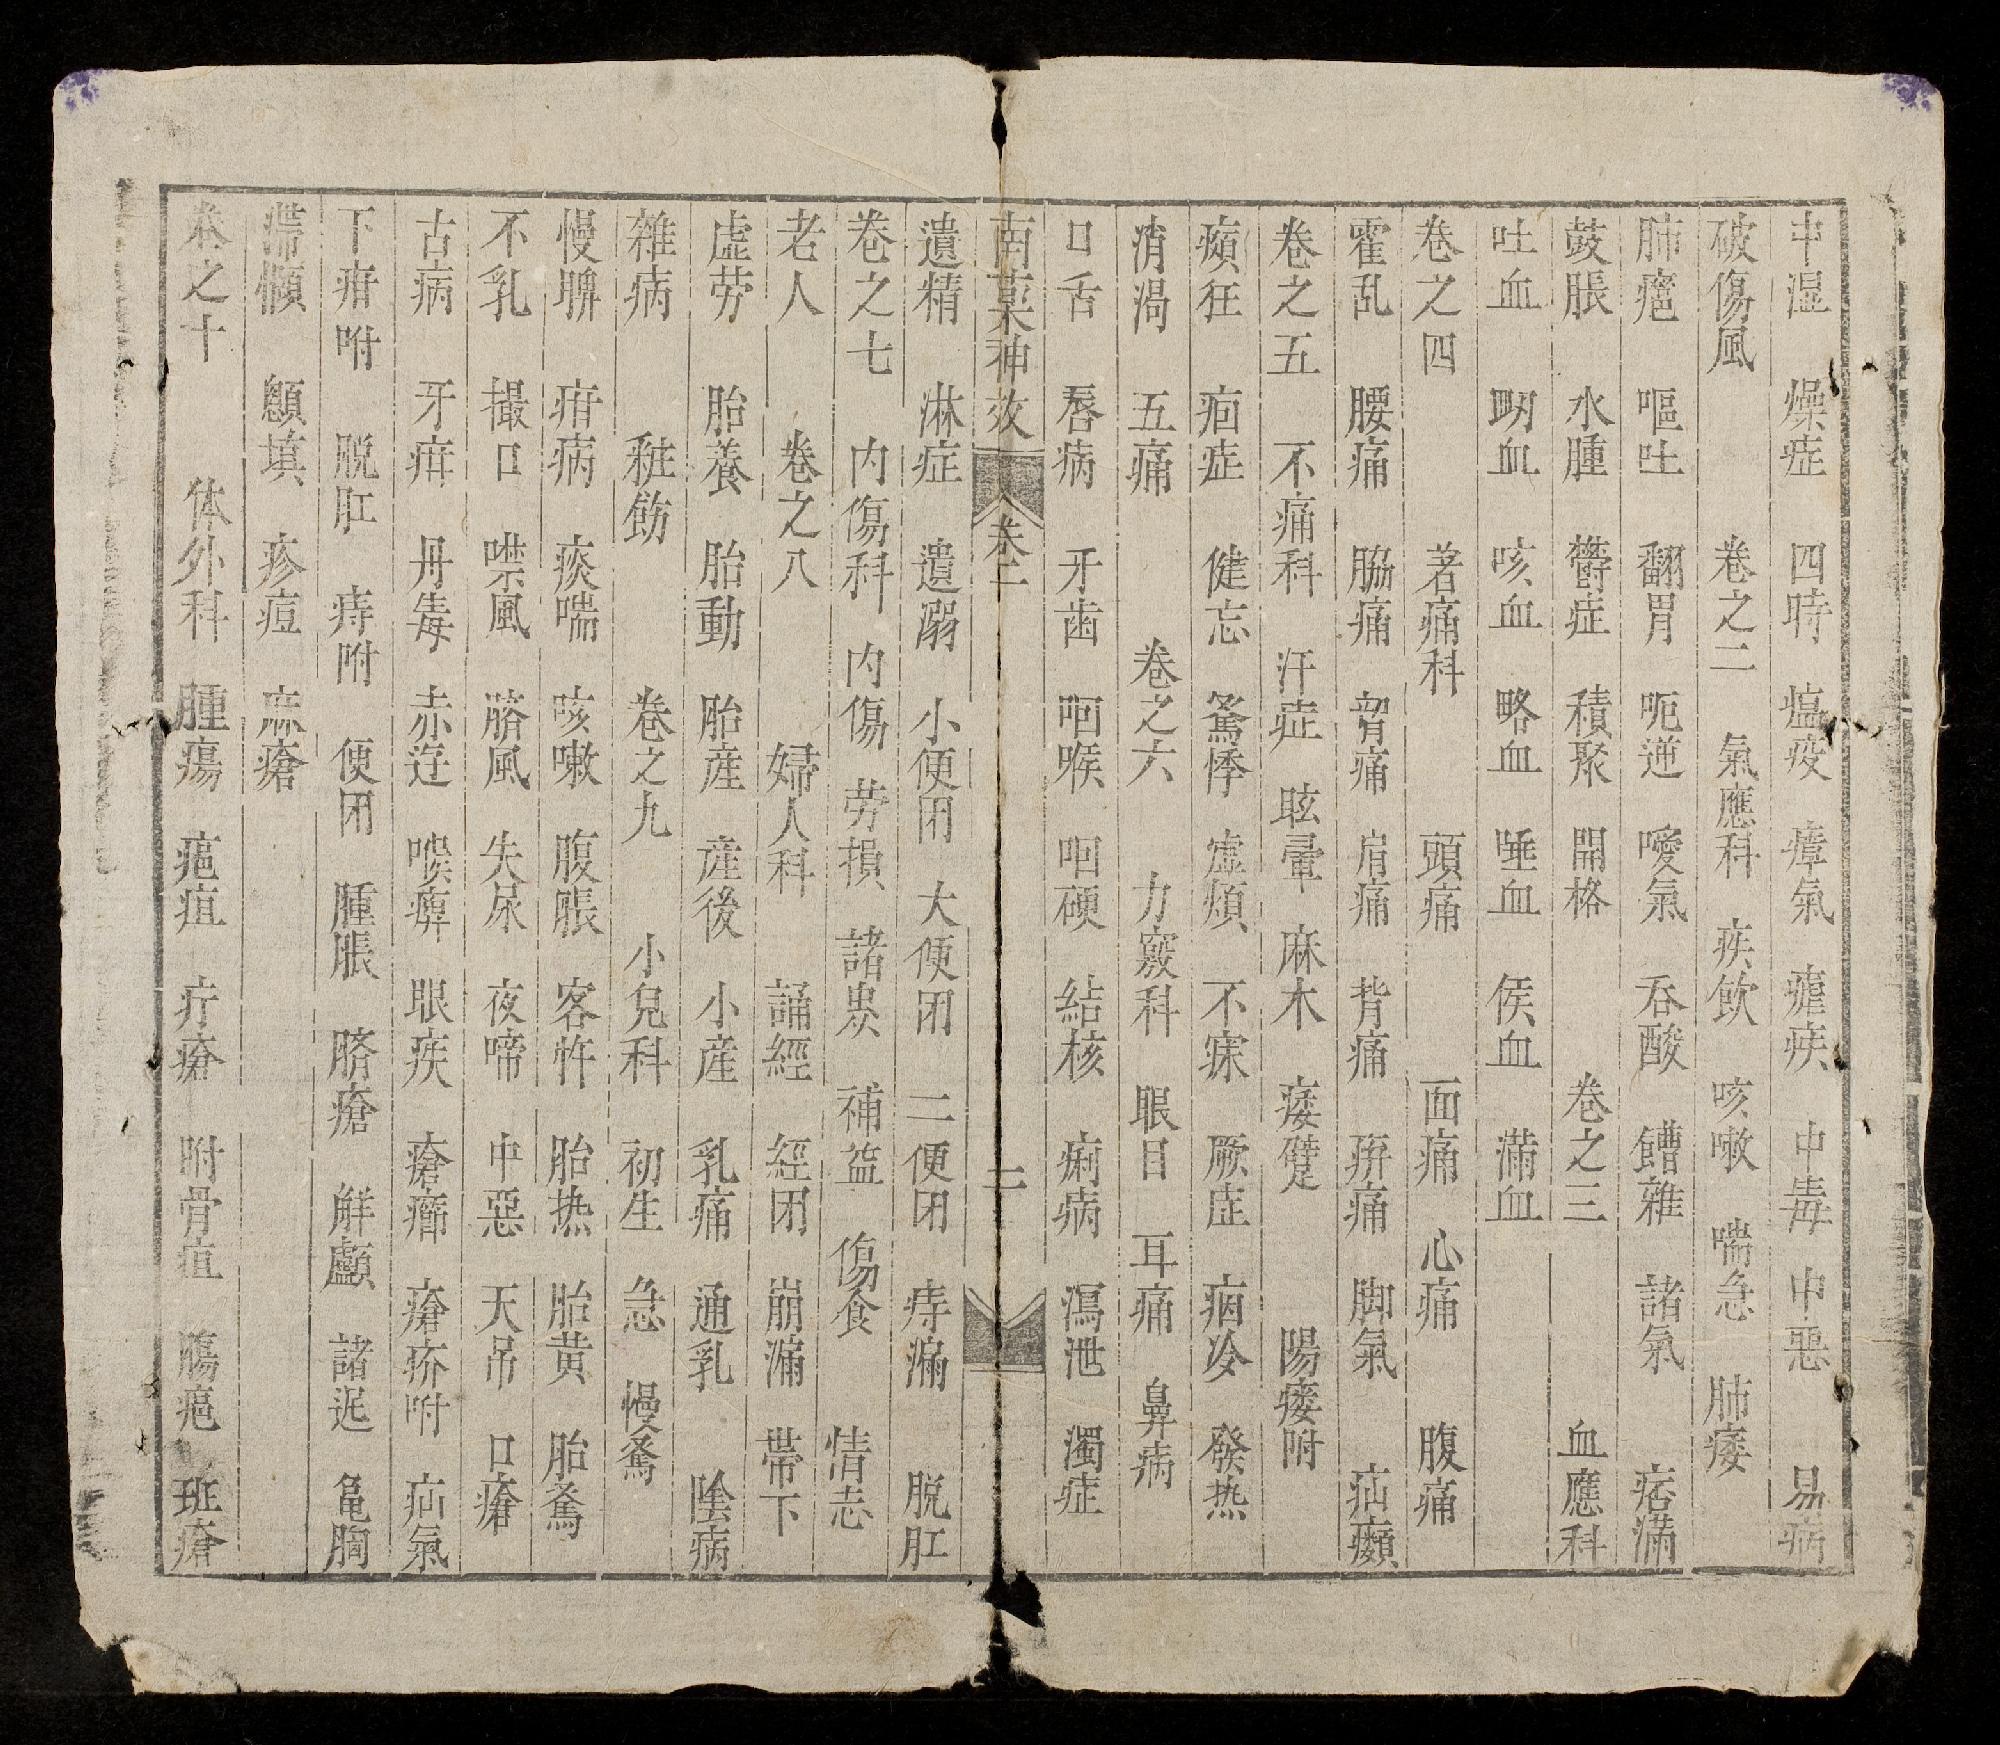 中湿 燥症 四時 瘟疫 瘴氣 瘧疾 中毒 中惡 易病
破傷風 卷之二 氣應科 痰飲 咳嗽 喘急 肺痿
肺癰 嘔吐 翻胃 呃逆 噯氣 吞酸 饋雜 諸氣 痞滿
鼓脹 水腫 欝症 積聚 開格 卷之三 血應科
吐血 衂血 咳血 略血 唾血 侯血 滿血
卷之四 著痛科 頭痛 面痛 心痛 腹痛
霍乱 腰痛 脇痛 胷痛 肩痛 背痛 痹痛 脚氣 疝㿗
卷之五 不痛科 汗症 眩暈 麻木 痿躄 陽痿附
癲狂 癇症 健忘 驚悸 虛煩 不寐 厥症 痼冷 發热
消渴 五痛 卷之六 力竅科 眼目 耳痛 鼻病
口舌 唇病 牙齒 咽喉 咽硬 結核 痢病 瀉泄 濁症
南藥神效 卷二 二
遺精 淋症 遺溺 小便闭 大便闭 二便闭 痔漏 脱肛
卷之七 內傷科 內傷 劳損 諸炭 補益 傷食 情志
老人 卷之八 婦人科 誦經 經闭 崩漏 帶下
虛劳 胎養 胎動 胎産 産後 小産 乳痛 通乳 陰病
雜病 粧飭 卷之九 小兒科 初生 急 慢驚
慢脾 疳病 痰喘 咳嗽 腹脹 客忤 胎热 胎黄 胎驚
不乳 撮口 噤風 臍風 失尿 夜啼 中惡 天吊 口瘡
古病 牙疳 丹毒 赤逰 喉痹 眼疾 瘡癤 瘡疥附 疝氣
下疳附 脱肛 痔附 便闭 腫脹 臍瘡 觧顱 諸泥 龟胸
滯頤 顖填 疹痘 麻瘡
卷之十 体外科 腫瘍 疤疽 疔瘡 附骨疽 腸疤 班瘡